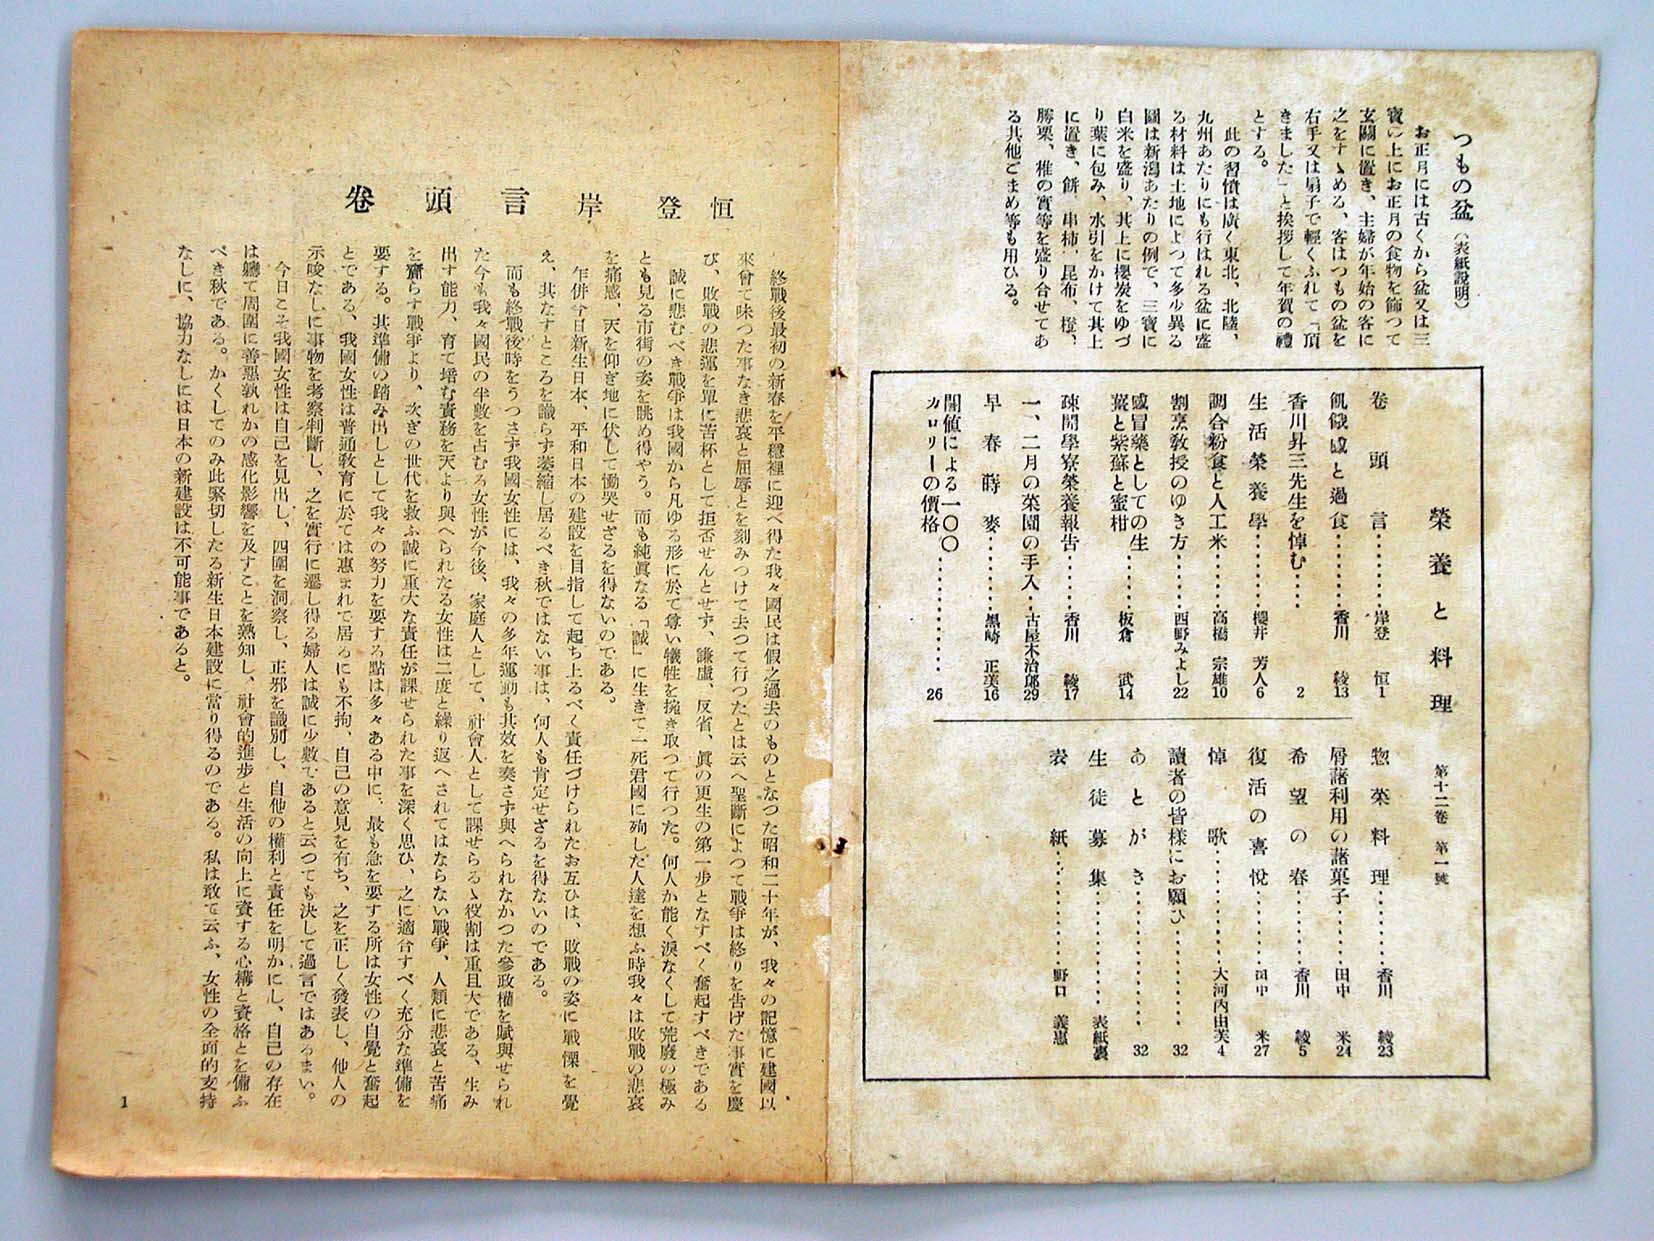 つもの盆（表紙説明）
お正月には古くから盆又は三
寶の上にお正月の食物を飾つて
玄關に置き、主婦が年始の客に
之をすゝめる、客はつもの盆を
右手又は扇子で輕くふれて「頂
きました」と挨拶して年賀の禮
とする。
此の習慣は廣く東北、北陸、
九州あたりにも行はれる盆に盛
る材料は土地によつて多少異る
圖は新潟あたりの例で、三寶に
白米を盛り、其上に櫻炭をゆづ
り葉に包み、水引をかけて其上
に置き、餅、串柿、昆布、橙、
勝栗、椎の實等を盛り合せてあ
る其他ごまめ等も用ひる。
榮養と料理 第十二卷 第一號
卷頭言………岸登 恒 1
飢餓感と過食………香川 綾 13
香川昇三先生を悼む………2
生活榮養學………櫻井 芳人 6
調合粉食と人工米………高橋 宗雄 10
割烹教授のゆき方………西野みよし 22
感冒藥としての生
薑と紫蘇と蜜柑………板倉 武 14
疎開學寮榮養報告………香川 綾 17
一、二月の菜園の手入………古屋木治郎 29
早春蒔麥………黒崎 正美 16
闇値による一〇〇
カロリーの價格………26
惣菜料理………香川 綾 23
屑藷利用の藷菓子………田中 米 24
希望の春………香川 綾 5
復活の喜悅………田中 米 27
悼歌………大河内由芙 4
讀者の皆様にお願ひ………32
あとがき………32
生徒募集………表紙裏
表紙………野口 義惠
卷頭言 岸登恒
終戰後最初の新春を平穩裡に迎へ得た我々國民は假之過去のものとなつた昭和二十年が、我々の記憶に建國以
來曾て味つた事なき悲哀と屈辱とを刻みつけて去つて行つたとは云へ聖斷によつて戰爭は終りを告げた事實を慶
び、敗戰の悲運を單に苦杯として拒否せんとせず、謙虚、反省、眞の更生の第一歩となすべく奮起すべきである
誠に悲むべき戰爭は我國から凡ゆる形に於て尊い犧牲を捥き取つて行つた。何人か能く淚なくして荒廢の極み
とも見る市街の姿を眺め得やう。而も純眞なる「誠」に生きて一死君國に殉した人達を想ふ時我々は敗戰の悲哀
を痛感、天を仰ぎ地に伏して慟哭せざるを得ないのである。
乍併今日新生日本、平和日本の建設を目指して起ち上るべく責任づけられたお互ひは、敗戰の姿に戰慄を覺
え、其なすところを識らず萎縮し居るべき秋ではない事は、何人も肯定せざるを得ないのである。
而も終戰後時をうつさず我國女性には、我々の多年運動も其效を奏さず與へられなかつた參政權を賦與せられ
た今も我々國民の半數を占むる女性が今後、家庭人として、社會人として課せらるゝ役割は重且大である、生み
出す能力、育て培む責務を天より與へられたる女性は二度と繰り返へされてはならない戰爭、人類に悲哀と苦痛
を齎らす戰爭より、次ぎの世代を救ふ誠に重大な責任が課せられた事を深く思ひ、之に適合すべく充分な準備を
要する。其準備の踏み出しとして我々の努力を要する點は多々ある中に、最も急を要する所は女性の自覺と奮起
とである、我國女性は普通敎育に於ては惠まれて居るにも不拘、自己の意見を有ち、之を正しく發表し、他人の
示唆なしに事物を考察判斷し、之を實行に遷し得る婦人は誠に少數であると云つても決して過言ではあるまい。
今日こそ我國女性は自己を見出し、四圍を洞察し、正邪を識別し、自他の權利と責任を明かにし、自己の存在
は軈て周圍に善惡孰れかの感化影響を及すことを熟知し、社會的進步と生活の向上に資する心構と資格とを備ふ
べき秋である。かくしてのみ此緊切したる新生日本建設に當り得るのである。私は敢て云ふ、女性の全面的支持
なしに、協力なしには日本の新建設は不可能事であると。
1